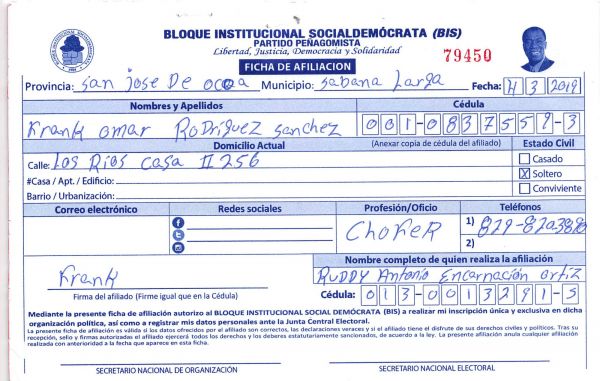 BLOQUE INSTITUCIONAL SOCIALDEMÓCRATA (BIS)
PARTIDO PEÑAGOMISTA
Libertad, Justicia, Democracia y Solidaridad
79450
FICHA DE AFILIACION
Provincia: San Jose De ocoa Municipio: Sabana Larga Fecha: 4 3 2019
Nombres y Apellidos Cédula
Krank omar RoDriguez Sanchez 001-0837559-3
Domicilio Actual (Anexar copia de cédula del afiliado) Estado Civil
Calle: Los Rios casa II 256 Casado
#Casa / Apt. / Edificio: X Soltero
Barrio / Urbanización: Conviviente
Correo electrónico Redes sociales Profesión/Oficio Teléfonos
ChoFeR 1)
2)
Nombre completo de quien realiza la afiliación
Krank RuDDY Antonio Encarnación ortiz
Firma del afiliado (Firme igual que en la Cédula) Cédula: 013-0013291-5
Mediante la presente ficha de afiliación autorizo al BLOQUE INSTITUCIONAL SOCIAL DEMÓCRATA (BIS) a realizar mi inscripción única y exclusiva en dicha
organización política, así como a registrar mis datos personales ante la Junta Central Electoral.
La presente ficha de afiliación es válida si los datos ofrecidos por el afiliado son correctos, las declaraciones veraces y si el afiliado tiene el disfrute de sus derechos civiles y políticos. Tras su
recepción, sello y firmas autorizadas el afiliado ejercerá todos los derechos y los deberes estatutariamente sancionados, de acuerdo a la ley. La presente afiliación anula cualquier afiliación
realizada con anterioridad a la fecha que aparece en esta ficha.
SECRETARIO NACIONAL DE ORGANIZACIÓN SECRETARIO NACIONAL ELECTORAL